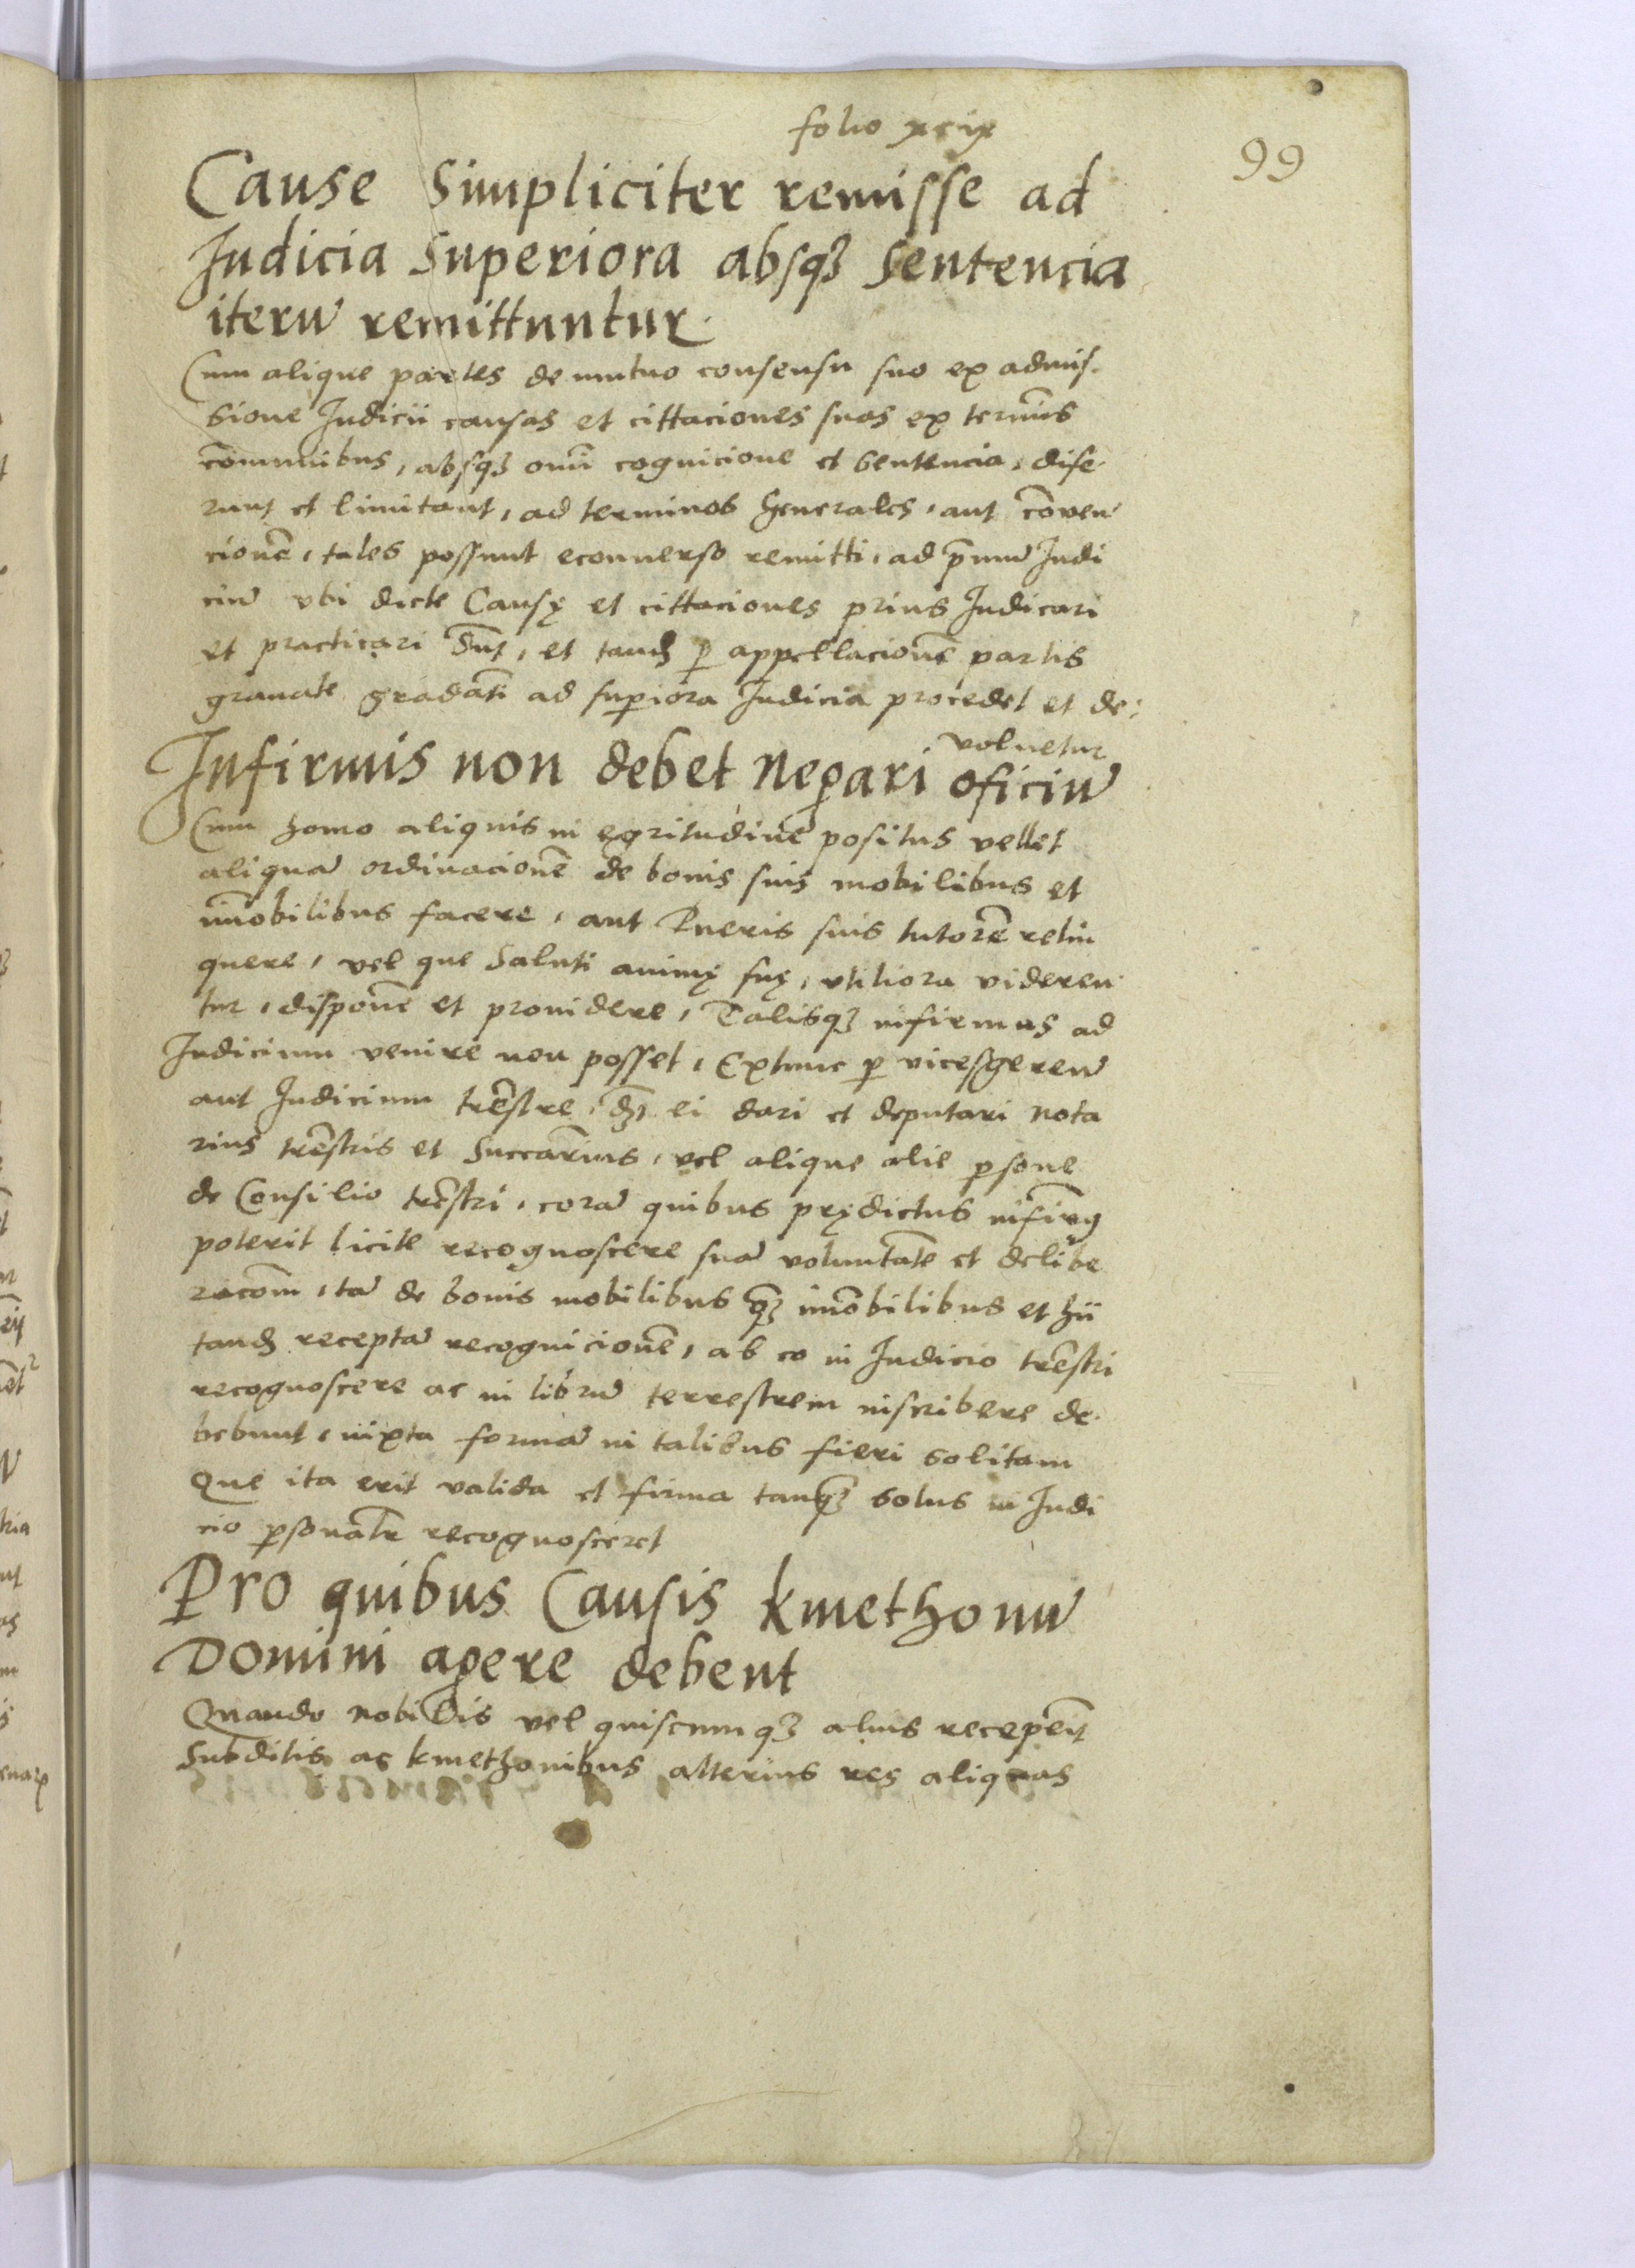 folio xcix
99
Cause Simpliciter remisse ad
Iudicia Superiora absqꝫ Sentencia
iterū remittuntur.
Cum alique partes de mutuo consensu suo ex admis-
sione Iudicii causas et cittaciones suas ex termīs
cōmunibus, absqꝫ omī cognicione et sentencia, dife-
runt et limitant, ad terminos generales, aut cōven
cionē, tales possunt econuerso remitti, ad p̄mum Iudi
ciū vbi dicte Causę et cittaciones prius Iudicari
et practicari Sūt, et tandꝫ ꝑ appellacionē partis
grauate gradatī ad suꝑiora Iudicia procedet et de:
voluetur
Infirmis non debet negari oficiū
Cum homo aliquis in egritudine positus vellet
aliquā ordinacionē de bonis suis mobilibus et
im̄obilibus facere, aut Pueris suis tutorē relin
quere, vel que Saluti animę suę, vtiliora videren-
tur, disponē et prouidere, Talisqꝫ infirmus ad
Iudicium venire non posset, Extunc ꝑ vicesgerenū
aut Iudicium trēstre, dꝫ ei dari et deputari nota
rius trēstris et Succarīus, vel alique alie ꝑsone
de Consilio trēstri, corā quibus prędictus infirmꝯ
poterit licite recognoscere suā voluntatē et delibe
racōm, tā de bonis mobilibus qꝫ̄ im̄obilibus et hii
tandꝫ receptā recognicionē, ab eo in Iudicio trēstri
recognoscere ac in librū terrestrem inscribere de-
bebunt, iuxta formā in talibus fieri solitam
Que ita erit valida et firma tanqꝫ̄ solus in Iudi
cio ꝑsonalr̄ recognosceret
Pro quibus Causis kmethonū
Domini agere debent
Quando nobilis vel quiscumqꝫ alius recepērit
Subditis ac kmethonibus alterius res aliquas